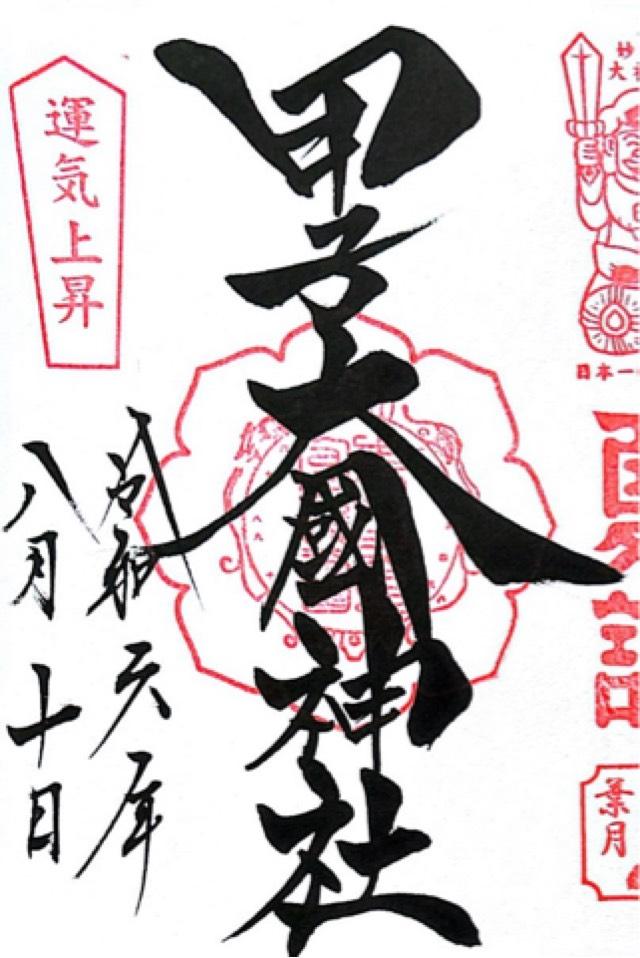 妙
大
日本一
葉月
甲子大國神社
令和六年
八月十日
運気上昇